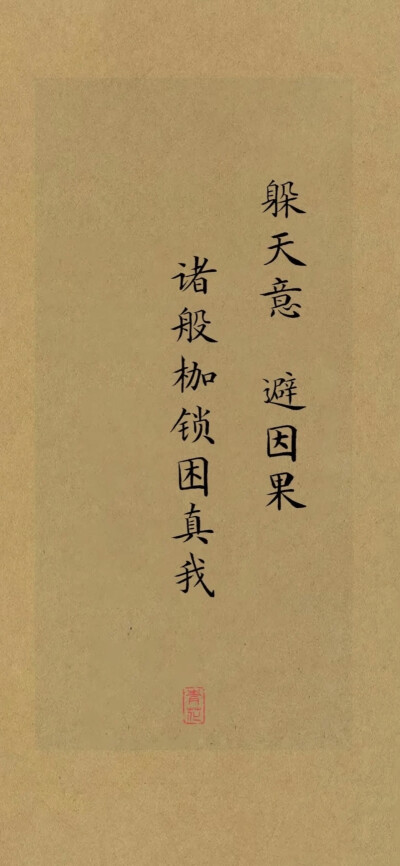 躲天意 避因果
诸般枷锁困真我